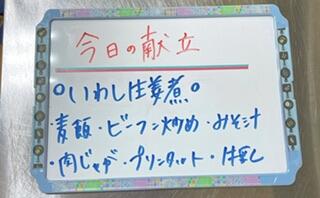 今日の献立
○いわし生姜煮○
・麦飯・ビーフン炒め・みそ汁
・肉じゃが・プリンタルト・